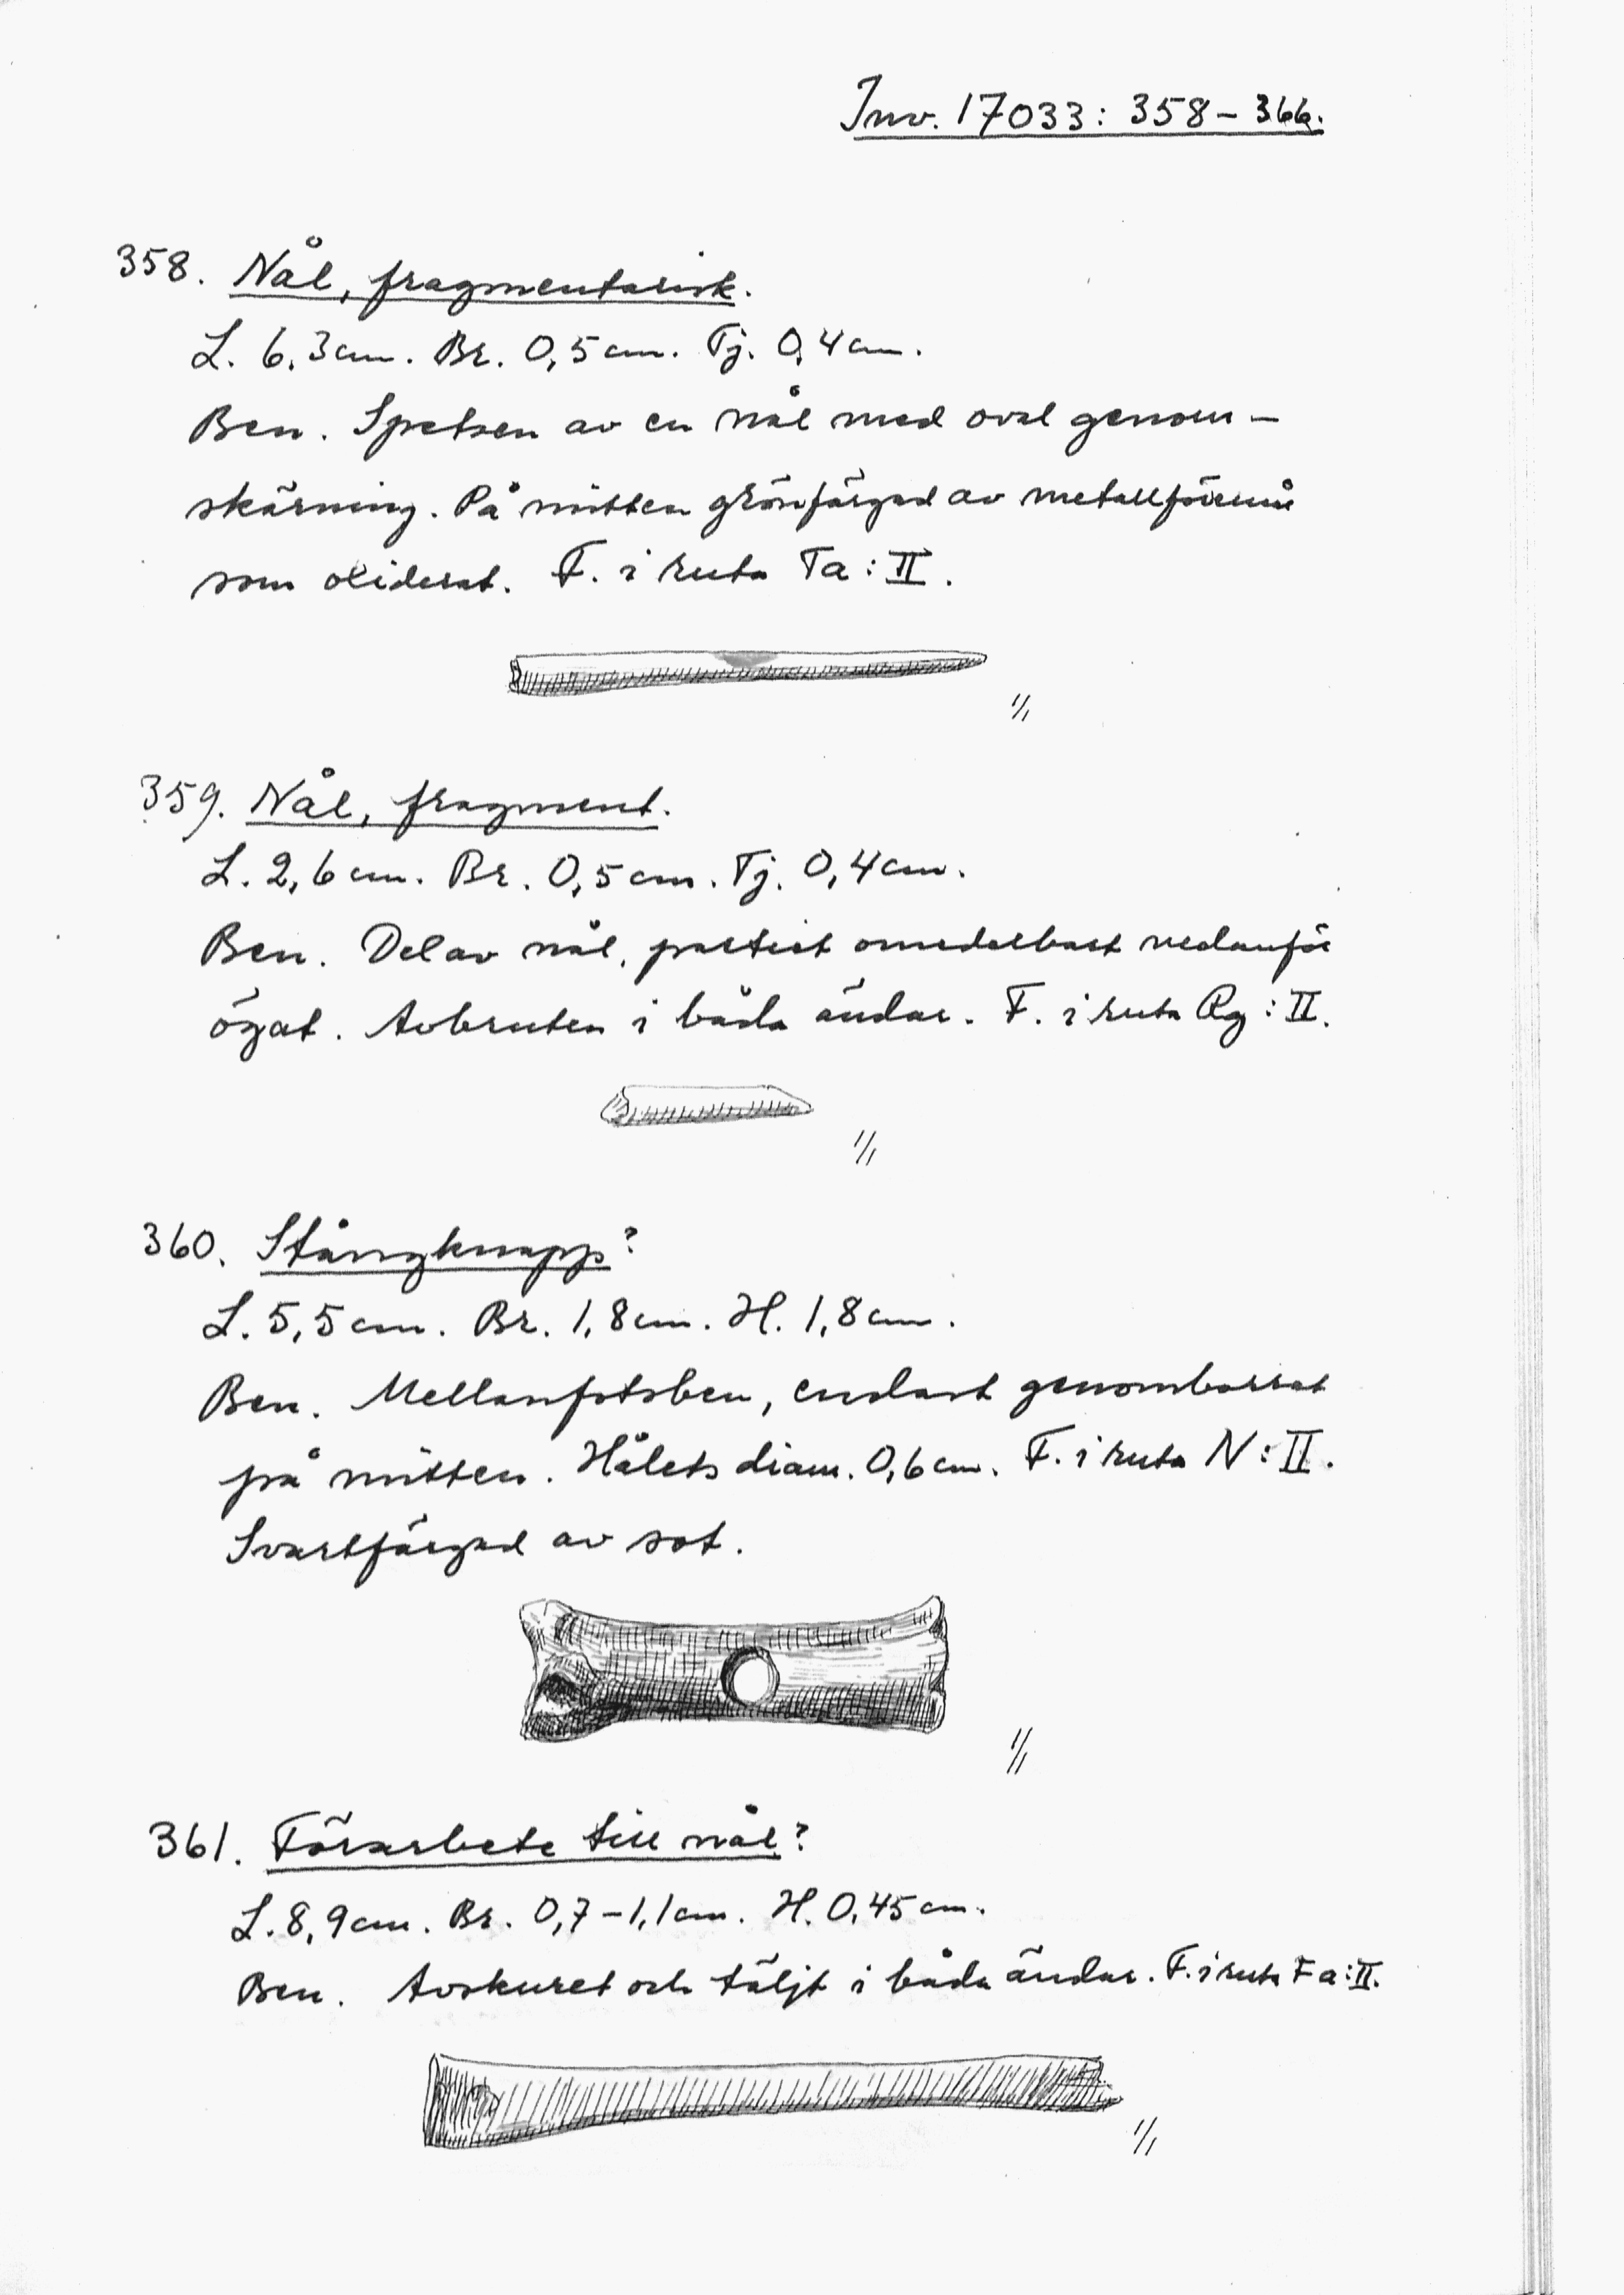 Inv. 17033: 358 – 366.
358. Nål, fragmentarisk.
L. 6,3 cm. Br. 0,5 cm. Tj. 0,4 cm.
Ben. Spetsen av en nål med oval genom-
skärning. På mitten grönfärgad av metallföremål
som oxiderat. F. i ruta Ta:II.
1/1
359. Nål, fragment.
L. 2,6 cm. Br. 0,5 cm. Tj. 0,4 cm.
Ben. Del av nål, partiet omedelbart nedanför
ögat. Avbruten i båda ändar. F. i ruta Rg:II.
1/1
360. Stångknapp?
L. 5,5 cm. Br. 1,8 cm. H. 1,8 cm.
Ben. Mellanfotsben, endast genomborrat
på mitten. Hålets diam. 0,6 cm. F. i ruta N:II.
Svartfärgad av sot.
1/1
361. Förarbete till nål?
L. 8,9 cm. Br. 0,7 – 1,1 cm. H. 0,45 cm.
Ben. Avskuret och täljt i båda ändar. F. i ruta Fa:II.
1/1